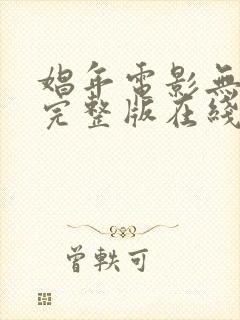 娼年電影無
完整版在綫
曾軼可